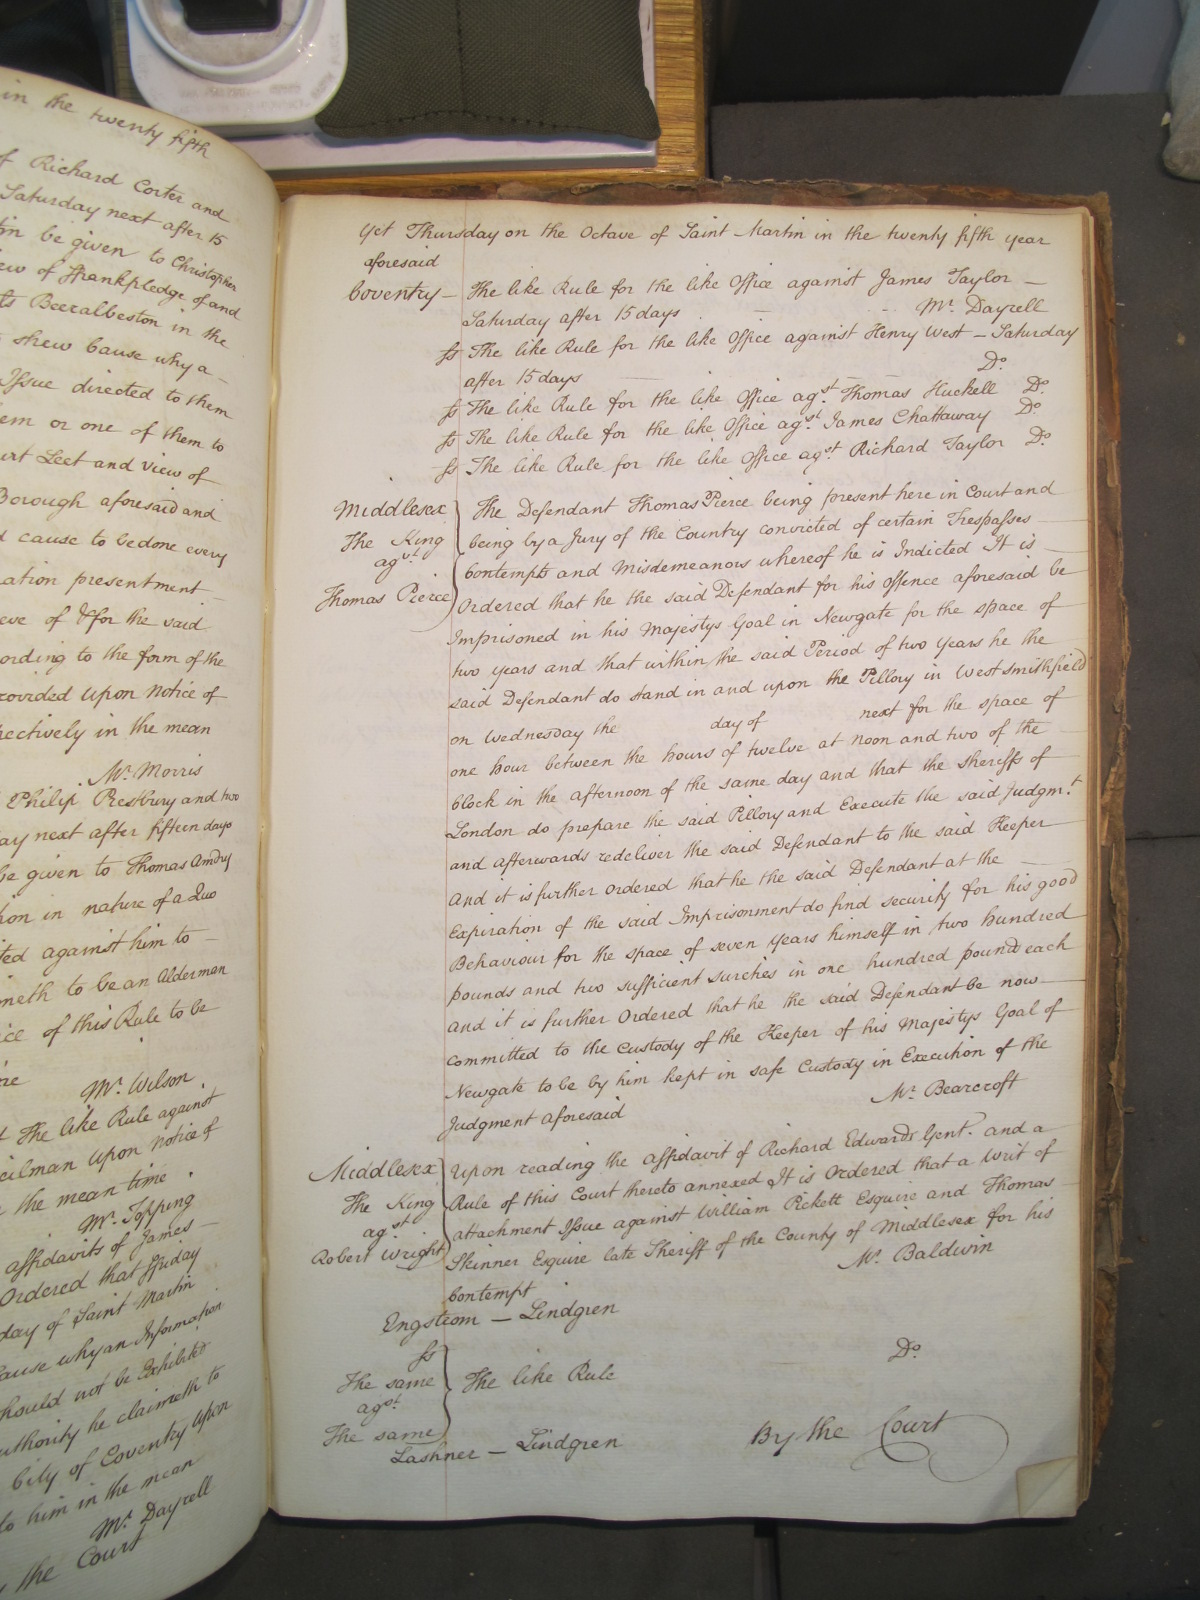 in the twenty fifth
Richard Corter and
Saturday next after 15
be given to Christopher
of Frankpledge of and
Beeralbeston in the
shew Cause why a
Issue directed to them
or one of them to
Leet and View of
Borough aforesaid and
cause to be done every
presentment
of & for the said
to the form of the
upon Notice of
in the mean
Mr. Morris
Philip Presbury and two
next after fifteen days
be given to Thomas Amdry
in nature of a Quo
against him to
to be an Alderman
of this Rule to be
Mr. Wilson
The like Rule against
upon Notice of
the mean time
Mr. Topping
affidavits of James
Ordered that Friday
day of Saint Martin
cause why an Information
should not be Exhibited
authority he claimeth to
City of Coventry upon
to him in the mean
Mr. Dayrell
the Court
Yet Thursday on the Octave of Saint Martin in the twenty fifth year
aforesaid
Coventry – The like Rule for the like Office against James Taylor –
Saturday after 15 days Mr. Dayrell
ss The like Rule for the like Office against Henry West – Saturday
after 15 days Do.
ss The like Rule for the like Office agst. Thomas Huckell Do.
ss The like Rule for the like Office agst. James Chattaway Do.
ss The like Rule for the like Office agst. Richard Taylor Do.
Middlesex
The King
agst.
Thomas Pierce
The Defendant Thomas Pierce being present here in Court and
being by a Jury of the Country convicted of certain Trespasses
Contempts and Misdemeanors whereof he is Indicted It is
Ordered that he the said Defendant for his Offence aforesaid be
Imprisoned in his Majestys Goal in Newgate for the space of
two years and that within the said Period of two years he the
said Defendant do stand in and upon the Pillory in West Smithfield
on Wednesday the day of next for the space of
one hour between the hours of twelve at noon and two of the
Clock in the afternoon of the same day and that the Sheriffs of
London do prepare the said Pillory and Execute the said Judgmt.
and afterwards redeliver the said Defendant to the said Keeper
And it is further Ordered that he the said Defendant at the
Expiration of the said Imprisonment do find security for his good
Behaviour for the space of seven years himself in two hundred
pounds and two sufficient sureties in one hundred pounds each
And it is further Ordered that he the said Defendant be now
committed to the Custody of the Keeper of his Majestys Goal of
Newgate to be by him kept in safe Custody in Execution of the
Judgment aforesaid Mr. Bearcroft
Middlesex
The King
agst.
Robert Wright
Upon reading the affidavit of Richard Edwards Gent. and a
Rule of this Court thereto annexed It is Ordered that a Writ of
attachment Issue against William Pickett Esquire and Thomas
Skinner Esquire late Sheriff of the County of Middlesex for his
Contempt Mr. Baldwin
Engstrom – Lindgren
ss
The same
agst.
The same
The like Rule Do.
Lashner – Lindgren
By the Court